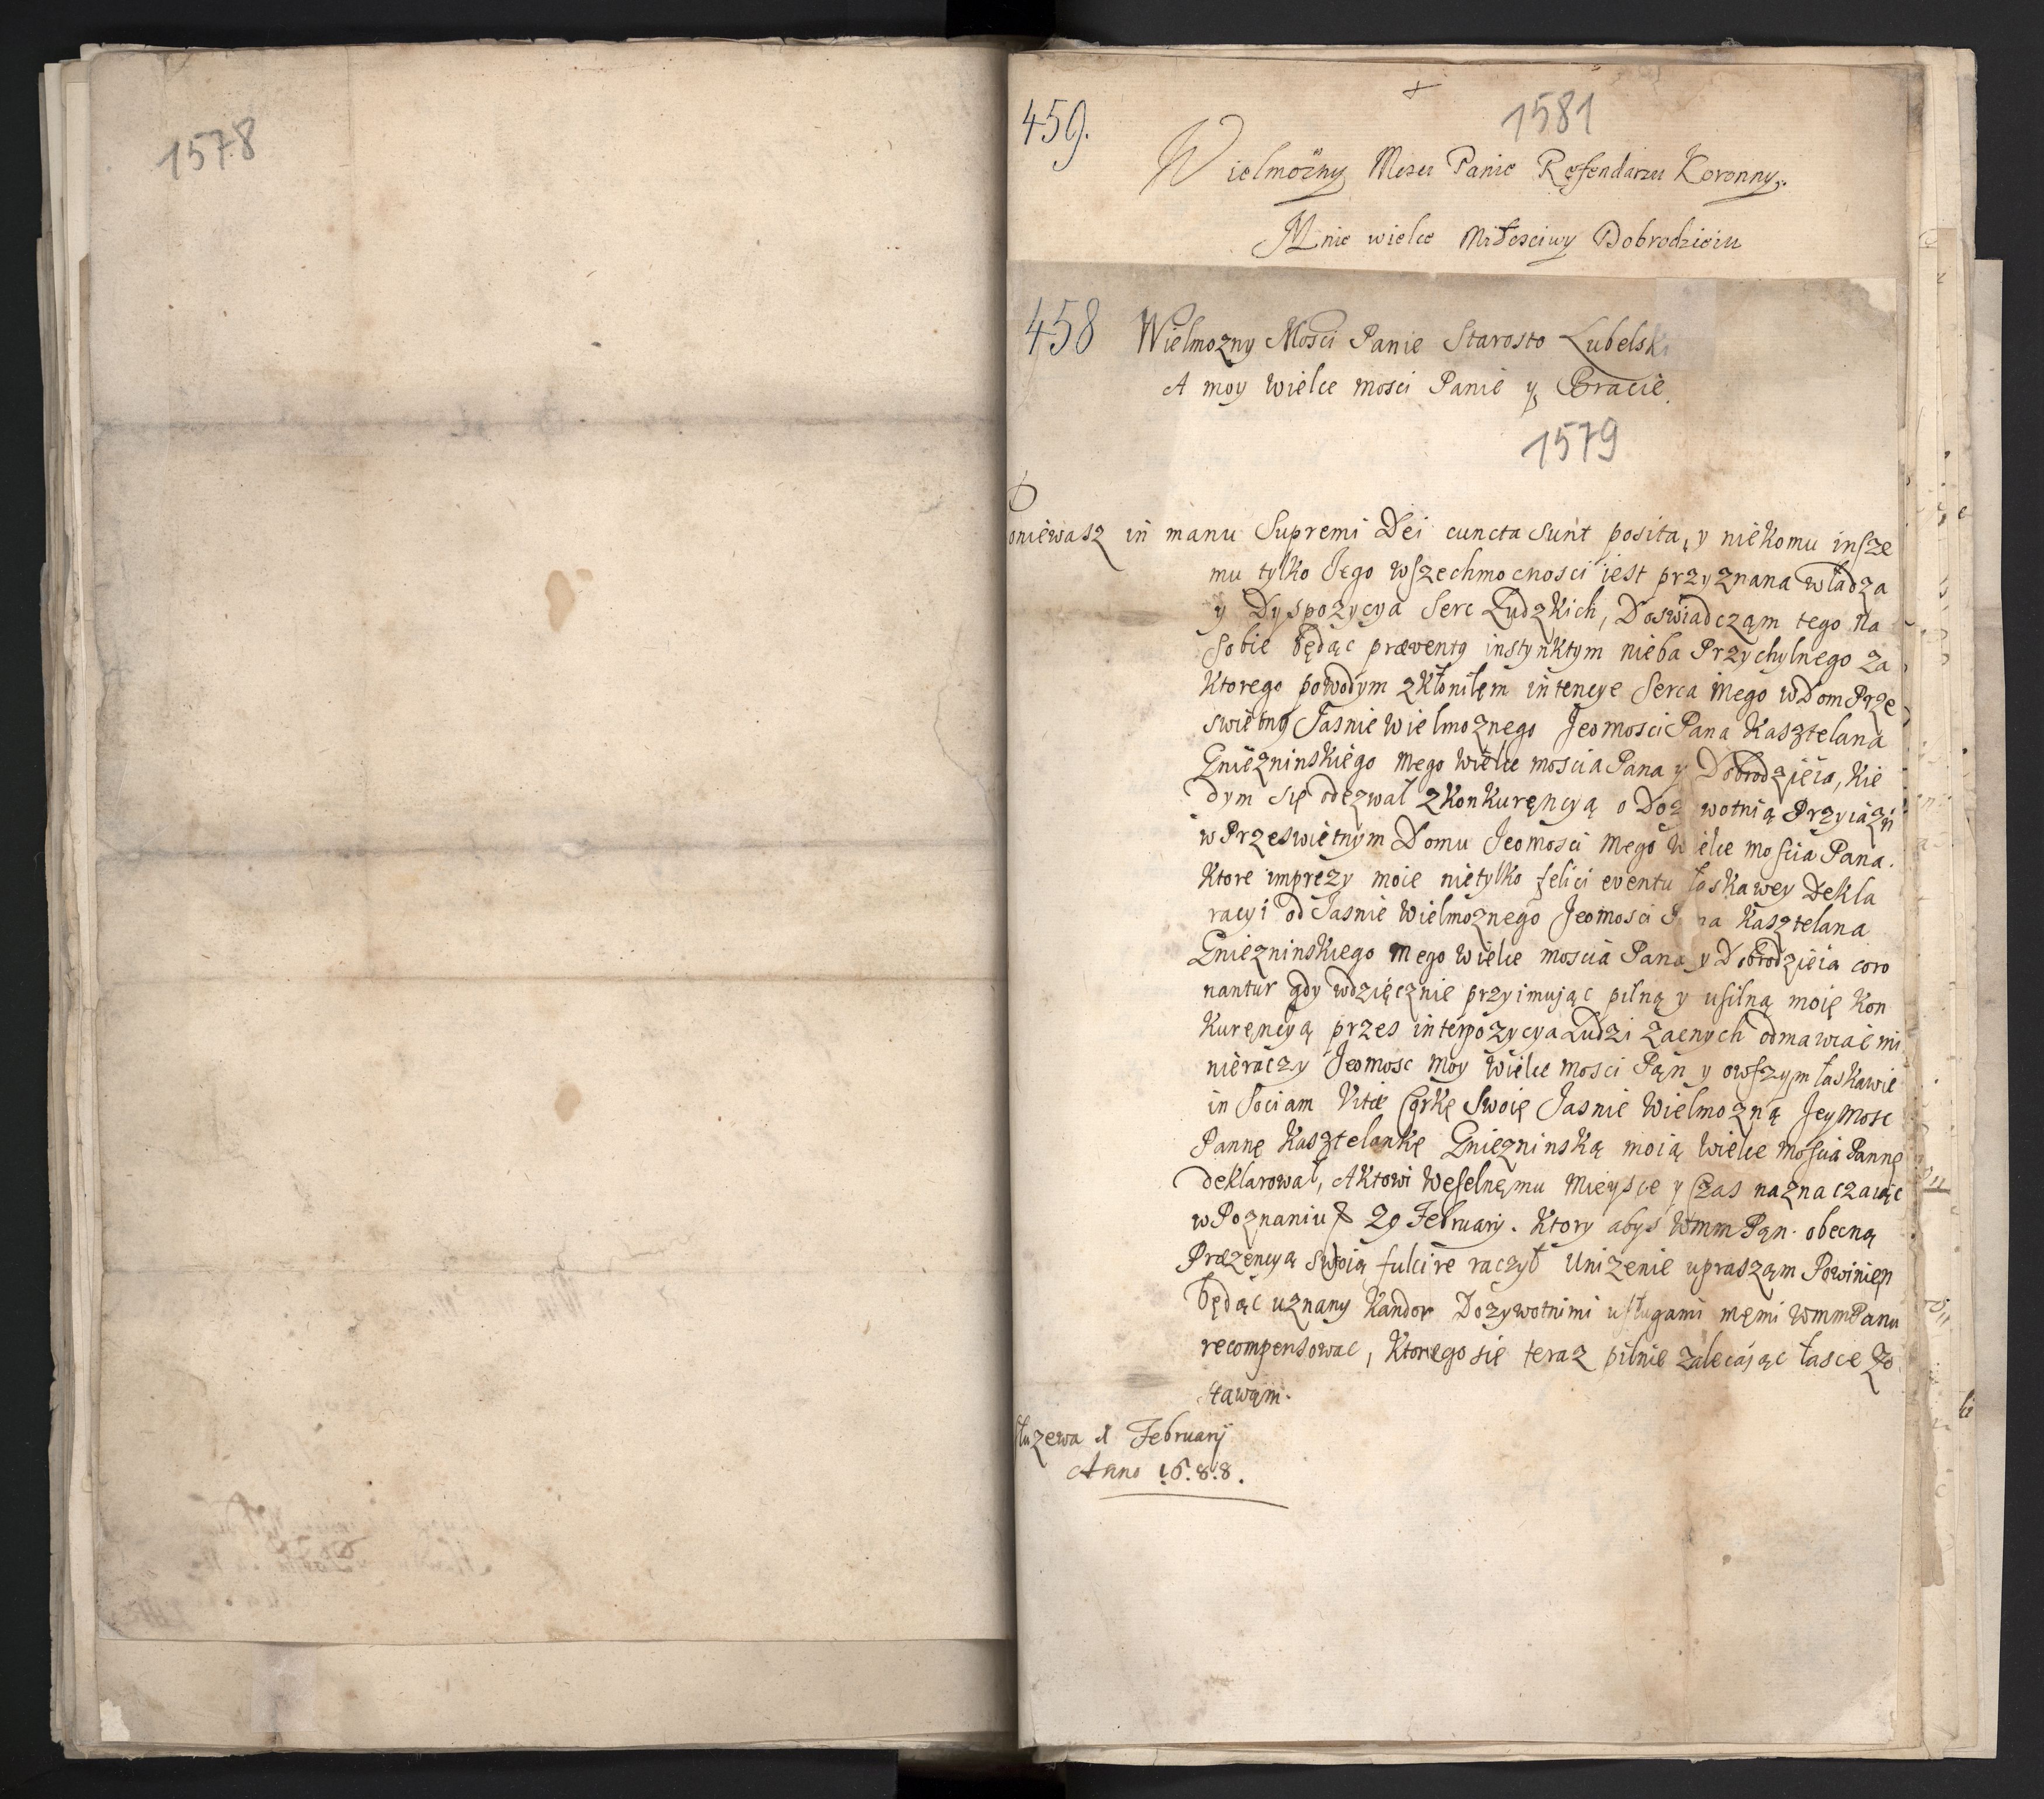 1578
459.
1581
Wielmożny Mości Panie Referadarzu Koronny.
Mnie wielce Miłosciwy Dobrodzieiu
458
Wielmozny Mosci Panie Starosto Lubelski
A moy wielce mosci Panie y Bracie.
1579
Poniewasz in manu Supremi Dei cuncta sunt posita, y niekomu insze
mu tylko Jego wszechmocnosci jest przyznana władza
y Dyspozycya Serc Ludzkich, Doswiadczam tego na
Sobie będąc præventy instynktym nieba Przychylnego za
Ktorego powodym zkłoniłem intencye Serca mego w Dom Prze
swietny Jasnie Wielmoznego Jeomosci Pana Kasztelana
Gniezninskiego mego wielce moscia Pana y Dobrodzieia, Kie
dym się odezwał z konkuręncyą o Dozywotnią Przyiazń
w Przeswietnym Domu Jeomosci mego Wielce moscia Pana.
Ktore imprezy moie nietylko felici eventu łaskawey Dekla
racyi od Jasnie Wielmoznego Jeomosci Pana Kasztelana
Gniezninskiego mego wielce moscia Pana y Dobrodzieia coro
nantur gdy wdzięcznie przyimując pilną y usilną moię Kon
Kuręncyą przes interpozycya Ludzi zacnych odmawiac mi
nieraczy Jeomosc moy wielce mosci Pąn y owszym łaskawie
in Sociam Vitæ Corkę Swoię Jasnie Wielmozną Jeymosc
Pannę Kasztelankę Gniezninską moią wielce moscia Pannę
deklarował, Aktowi Weselnęmu Mieysce y Czas naznaczaiąc
w Poznaniu 29 Februarij. Ktory abys Wmm Pąn. obecną
Præzencyą swoią fulcire raczył Unizenie uprasząm Powinięn
będąc uznany Kandor Dozywotnimi usługami męmi Wmm Panu
recompensowac, Ktorego się teraz pilnie zalecając łasce zo
stawąm.
Słuzewa d Februarij
Anno 1688.